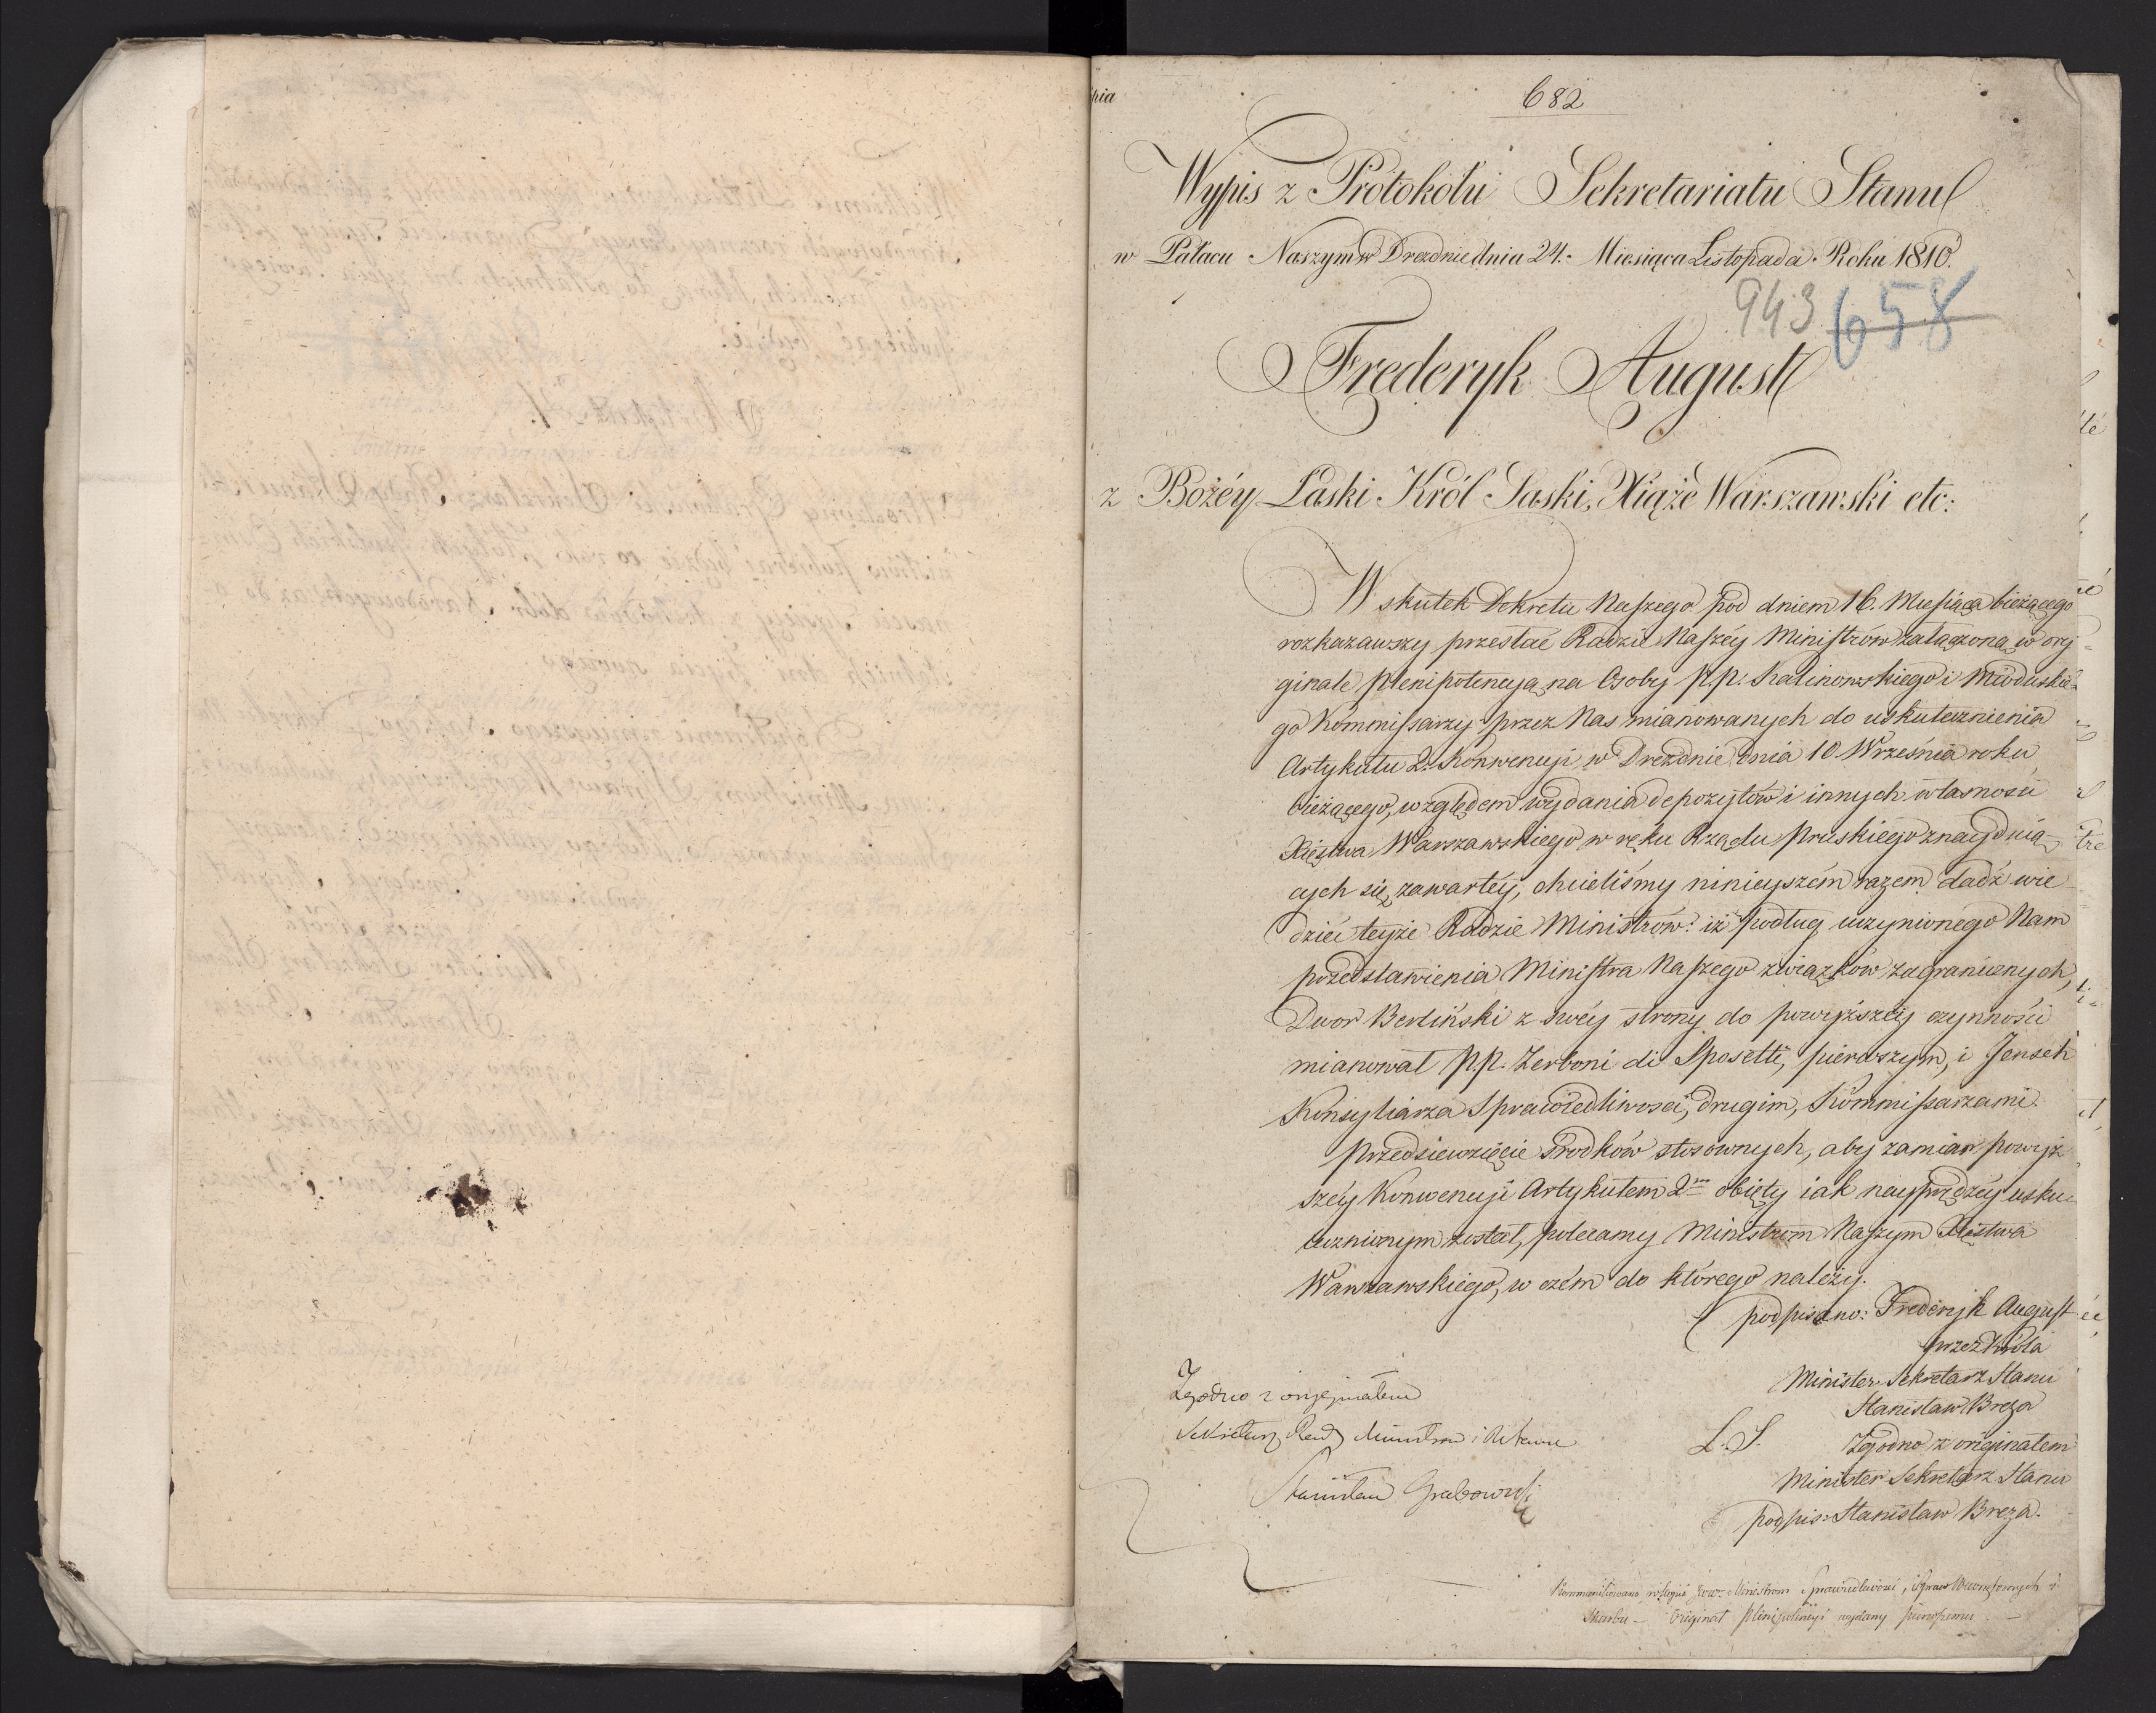 pia
682
Wypis z Protokółu Sekretariatu Stanu
w Pałacu Naszym w Dreźnie dnia 24. Miesiąca Listopada Roku 1810.
943 658
Frederyk August
z Bożéy Łaski Król Saski, Xiąże Warszawski etc:
W skutek Dekretu Naszego pod dniem 16. Miesiąca bieżącego
rozkazawszy przesłać Radzie Naszéy Ministrów załączoną w ory
ginale plenipotencyą na Osoby p.p. Kalinowskiego i Miduskie-
go Kommissarzy przez Nas mianowanych do uskutecznienia
Artykułu 2. Konwencyi w Dreźnie dnia 10. Września roku
bieżącego, względem wydania depozytów i innych własności
Xięstwa Warszawskiego w ręku Rządu Pruskiego znayduią-
cych się, zawartéy, chcieliśmy ninieyszém razem dadź wie-
dzieć teyże Radzie Ministrów: iż podług uczynionego Nam
przedstawienia Ministra Naszego związków zagranicznych,
Dwor Berliński z swéy strony do powyższéy czynności
mianował p.p. Zerboni di Sposetti, pierwszym, i Jensch
Konsyliarza Sprawiedliwości, drugim, Kommissarzami.
Przedsiewzięcie środków stosownych, aby zamiar powyż
széy Konwencyi Artykułem 2m obięty iak nayprędzéy usku-
tecznionym został, polecamy Ministrom Naszym Xięstwa
Warszawskiego, w czém do którego należy.
podpisano: Frederyk August
przez Króla
Minister Sekretarz Stanu
Stanisław Breza
L. S. Zgodno z originałem
Minister Sekretarz Stanu
podpis: Stanisław Breza.
Zgodno z oryginałem
Sekretarz Rady Ministrów i Stanu
Stanisław Grabowski
Kommunikowano Ministrom Sprawiedliwości, Spraw Wewnętrznych i
Skarbu – Originał plenipotencyi wydany pierwszemu –